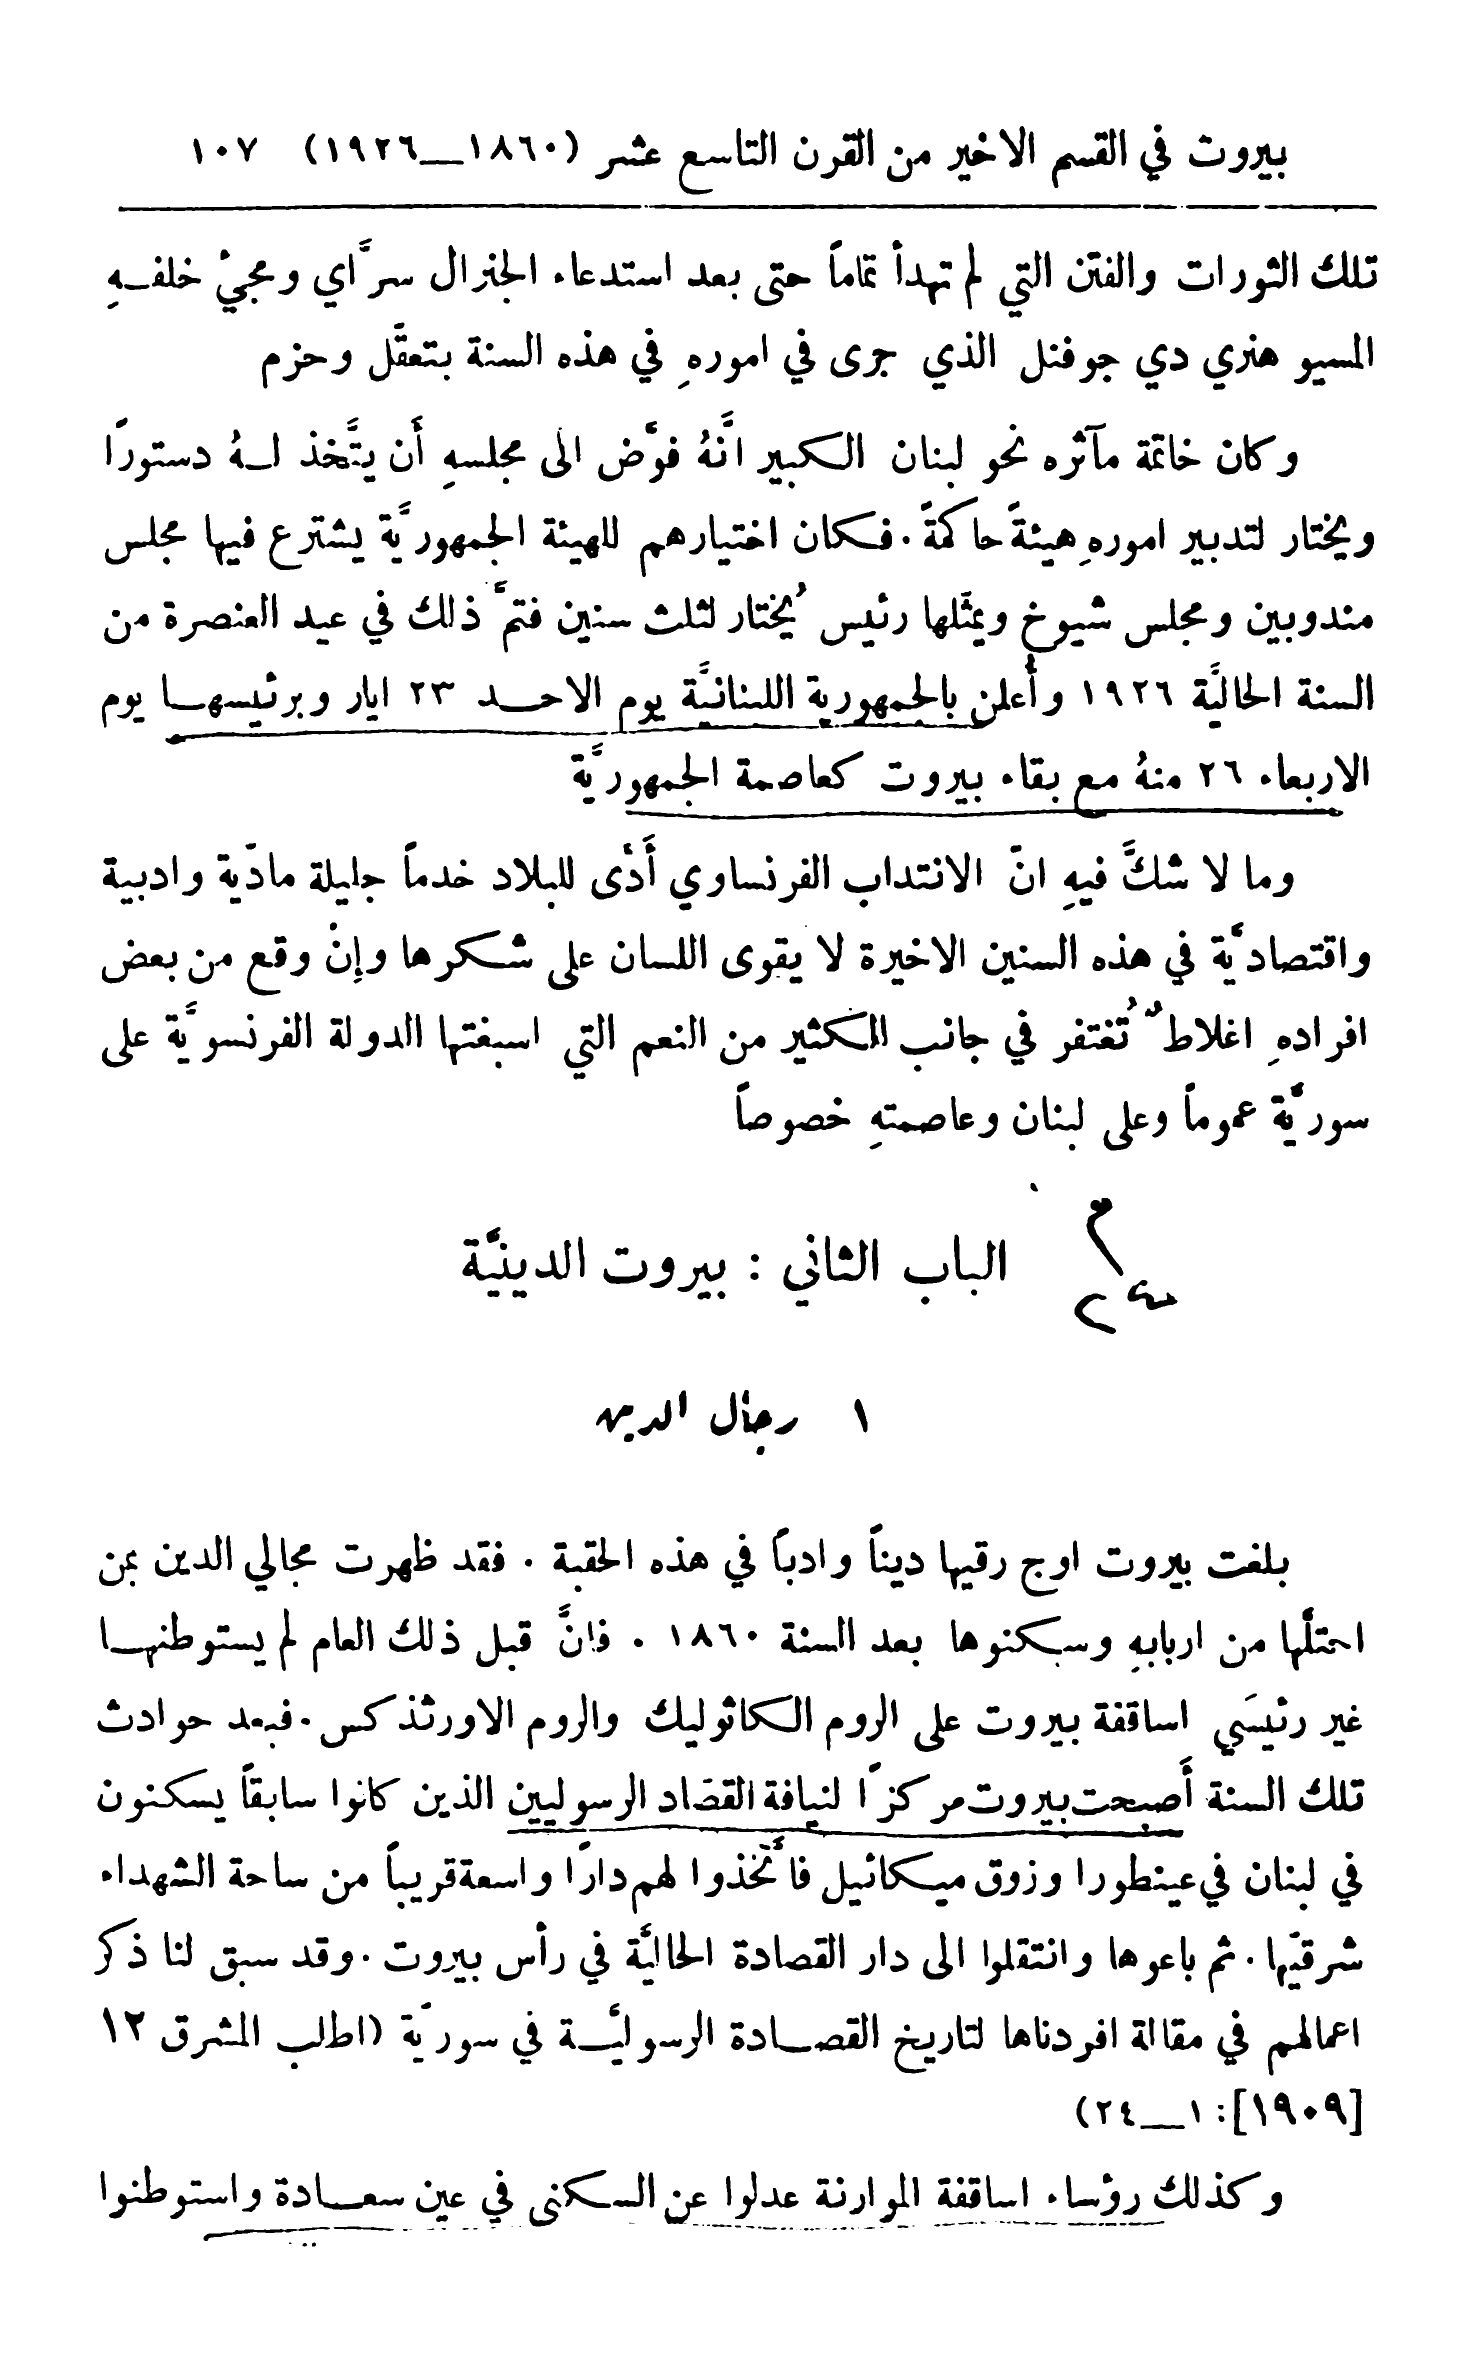 بيروت في القسم الاخير من القرن التاسع عشر (١٨٦٠—١٩٢٦) ١٠٧
تلك الثورات والفتن التي لم تهدأ تماماً حتى بعد استدعاء الجنرال سرَّاي ومجيْ خلفـهِ
المسيو هنري دي جوفنل الذي جرى في امورهِ في هذه السنة بتعقَّل وحزم
وكان خاتمة مآثره نحو لبنان الكبير انَّهُ فوَّض الى مجلسهِ أَن يتَّخذ لـهُ دستورًا
ويختار لتدبير امورهِ هيئةً حاكمةً. فكان اختيارهم للهيئة الجمهوريَّة يشترع فيها مجلس
مندوبين ومجلس شيوخ ويمثّلها رئيس يُختار لثلث سنين فتمَّ ذلك في عيد العنصرة من
السنة الحاليَّة ١٩٢٦ وأُعلن بالجمهورية اللبنانيَّة يوم الاحـد ٢٣ ايار وبرئيسهـا يوم
الاربعاء ٢٦ منهُ مع بقاء بيروت كعاصمة الجمهوريَّة
وما لا شكَّ فيهِ انّ الانتداب الفرنساوي أَدَّى للبلاد خدماً جليلة مادّية وادبية
واقتصاديَّة في هذه السنين الاخيرة لا يقوى اللسان على شكرها وإنْ وقع من بعض
افرادهِ اغلاطٌ تُغتفر في جانب الكثير من النعم التي اسبغتها الدولة الفرنسويَّة على
سوريَّة عموماً وعلى لبنان وعاصمتهِ خصوصاً
الباب الثاني : بيروت الدينيَّة
١ رجال الدين
بلغت بيروت اوج رقيها ديناً وادباً في هذه الحقبة . فقد ظهرت مجالي الدين بمن
احتلَّها من اربابهِ وسكنوها بعد السنة ١٨٦٠ . فانَّ قبل ذلك العام لم يستوطنهـا
غير رئيسَي اساقفة بيروت على الروم الكاثوليك والروم الاورثذكس. فبعد حوادث
تلك السنة أَصبحت بيروت مركزًا لنيافة القصَاد الرسوليين الذين كانوا سابقاً يسكنون
في لبنان في عينطورا وزوق ميكائيل فاتَّخذوا لهم دارًا واسعة قريباً من ساحة الشهداء
شرقيّها. ثم باعوها وانتقلوا الى دار القصادة الحاليَّة في رأس بيروت. وقد سبق لنا ذكر
اعمالهم في مقالة افردناها لتاريخ القصـادة الرسوليَّـة في سوريّة (اطلب المشرق ١٢
[١٩٠٩]: ١—٢٤)
وكذلك رؤساء اساقفة الموارنة عدلوا عن السكنى في عين سعـادة واستوطنوا